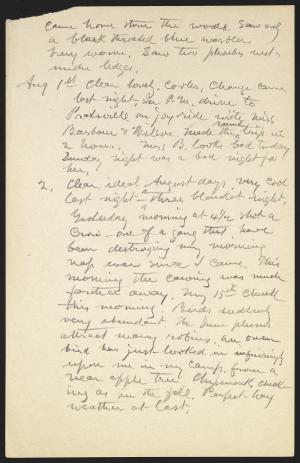 came home thru the woods. Saw only
a black throated blue warbler.
Very warm. Saw two phoebes nest
under ledges.
Aug 1st Clear, lovely, cooler, change came
last night. In P.M. drive to
Prattsville on joy-ride with Miss
Barbour & Wilson. Made the round trip in
2 hours. Miss B. looks bad today
Sunday night was a bad night for
her.
2. Clear ideal August days, very cool
last night - three blanket night.
Yesterday morning at 4½ shot a
Crow - one of a gang that have
been destroying my morning
nap ever since I came. This
morning the cawing was much
farther away. My 15th chuck
this morning. Birds suddenly
very abundant. The June plums
attract many robins. An oven
bird has just looked in inquiringly
upon me in my camp, from a
near apple tree. Chipmunk chuck-
ing as in the fall. Perfect hay
weather at last.